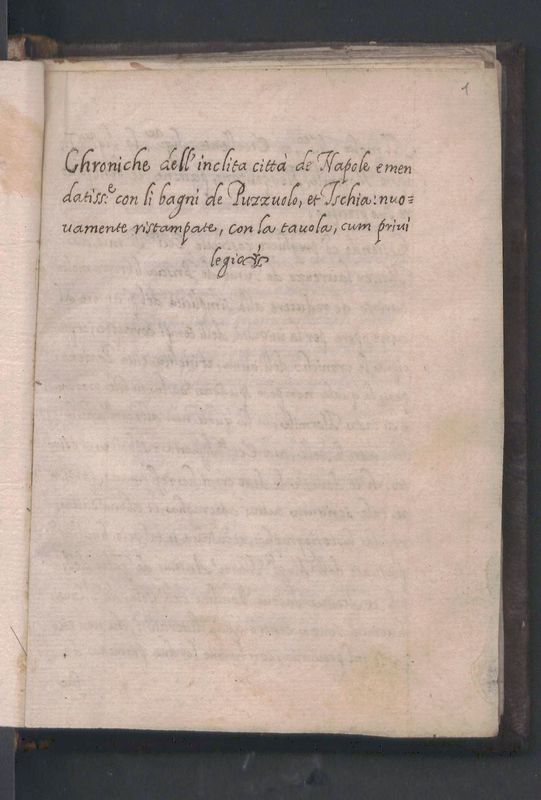 1
Chroniche dell'inclita città de Napole emen
datiss.e con li bagni de Puzzuolo, et Ischia: nuo=
vamente ristampate, con la tavola, cum privi
legio